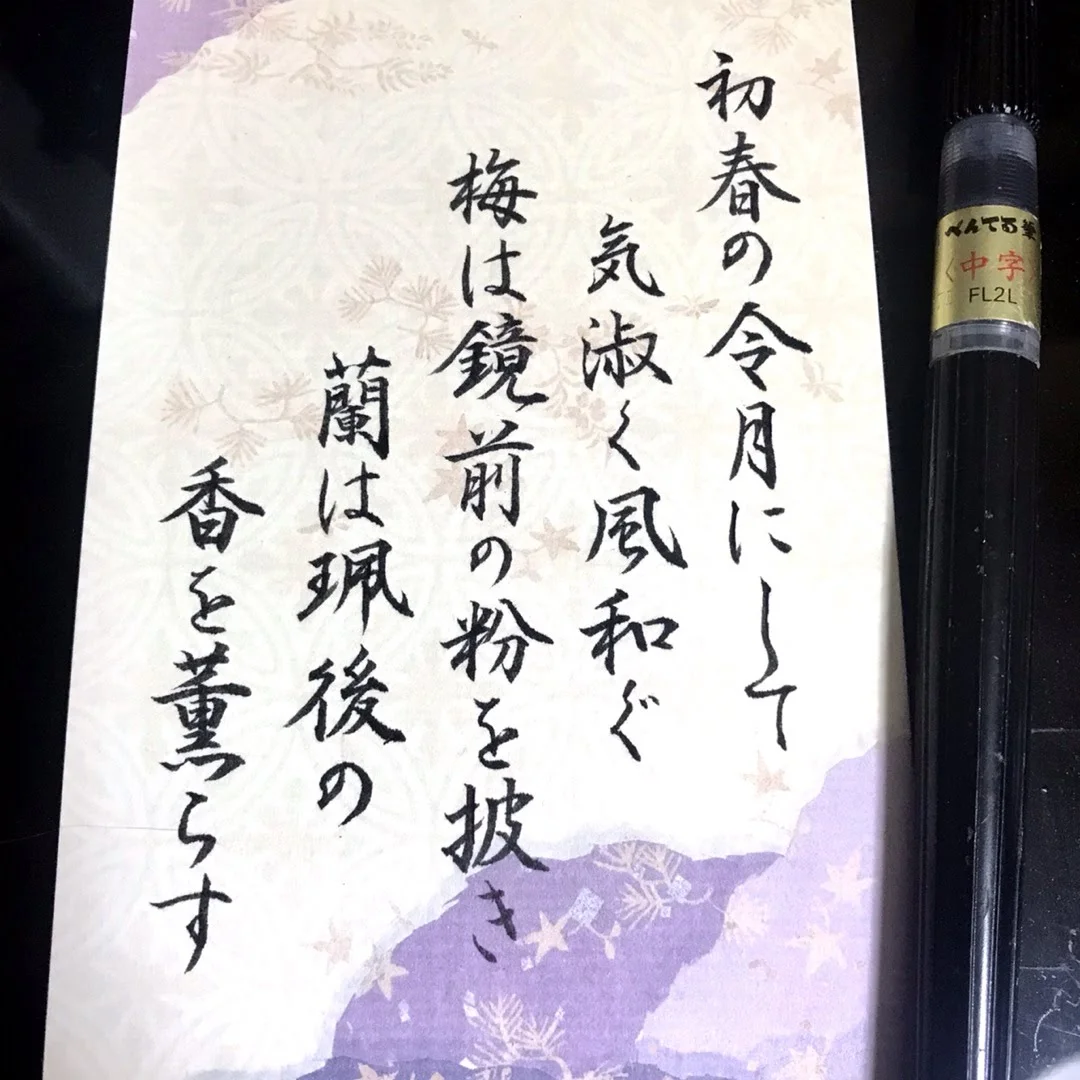 初春の令月にして
気淑く風和ぐ
梅は鏡前の粉を披き
蘭は珮後の
香を薫らす
ぺんてる筆
中字
FL2L